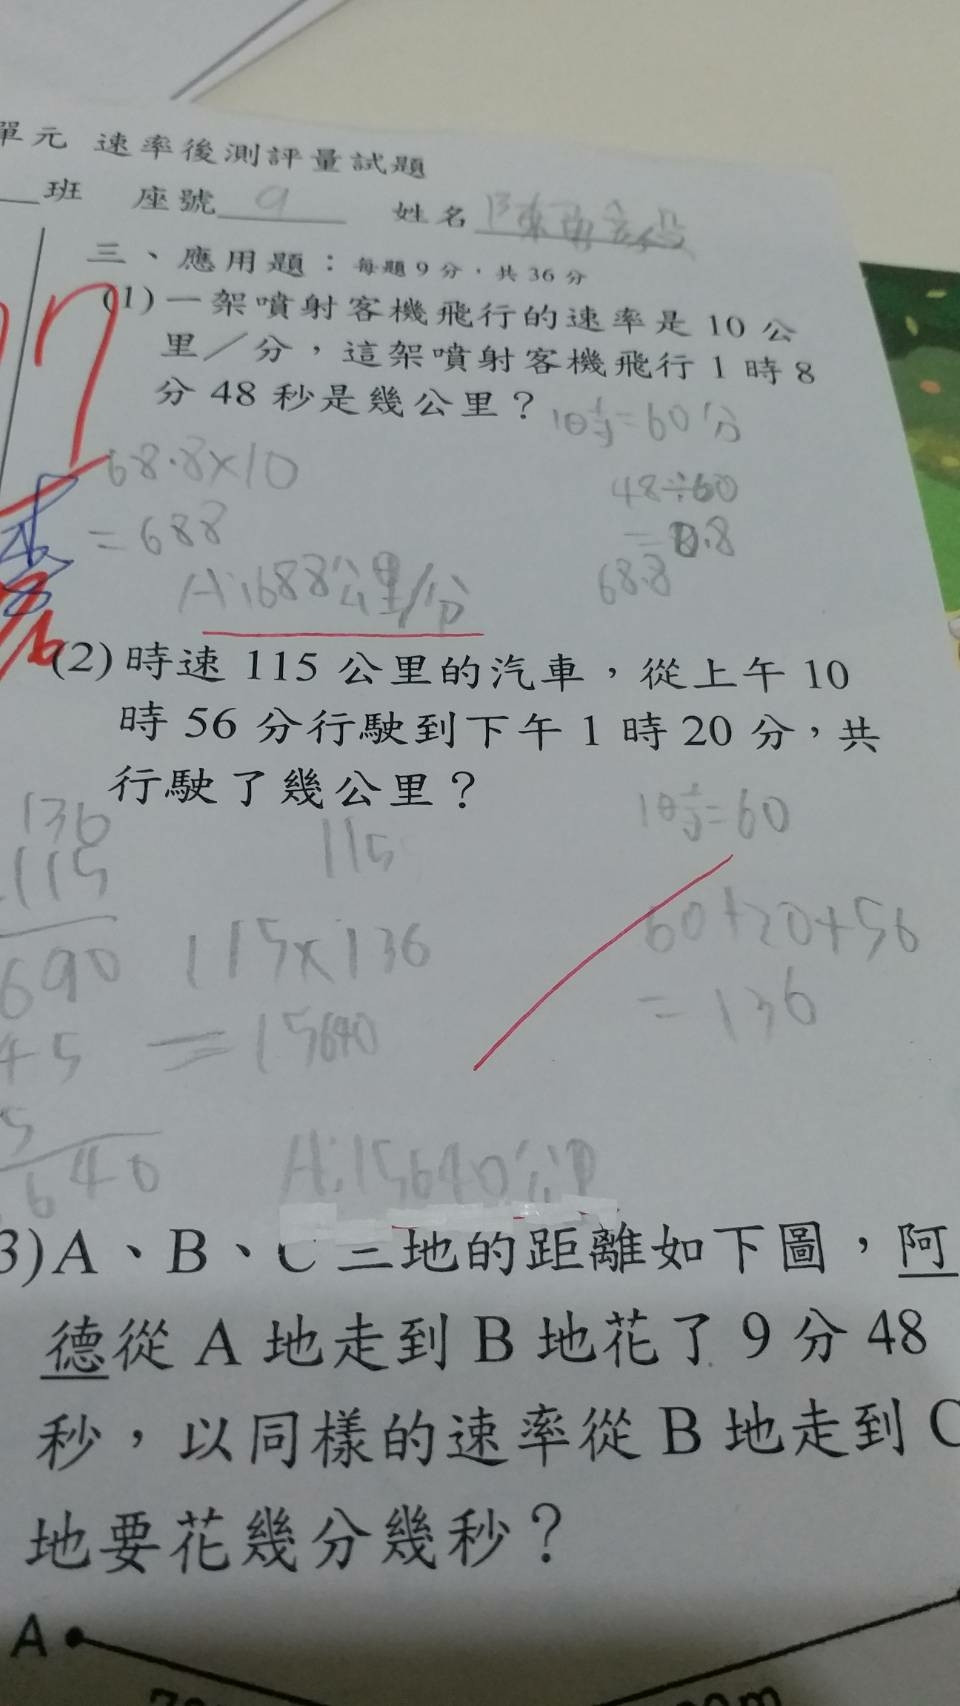 單元 速率後測評量試題
班 座號 9 姓名
三、應用題：每題9分，共36分
(1)一架噴射客機飛行的速率是10公
里／分，這架噴射客機飛行1時8
分48秒是幾公里？
1時=60分
68.8×10
48÷60
=688
=0.8
68.8
A:688公里/分
(2)時速115公里的汽車，從上午10
時56分行駛到下午1時20分，共
行駛了幾公里？
1時=60
136
115
115
60+20+56
690
115×136
=136
45
=15640
5
640
A:15640公里
3)A、B、C三地的距離如下圖，阿
德從A地走到B地花了9分48
秒，以同樣的速率從B地走到C
地要花幾分幾秒？
A